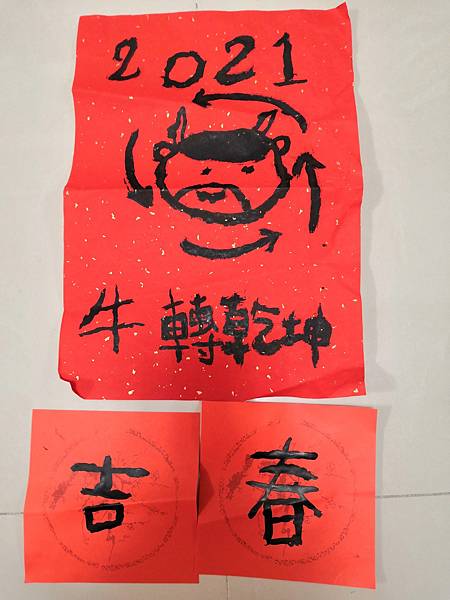 2021
牛轉乾坤
吉
春